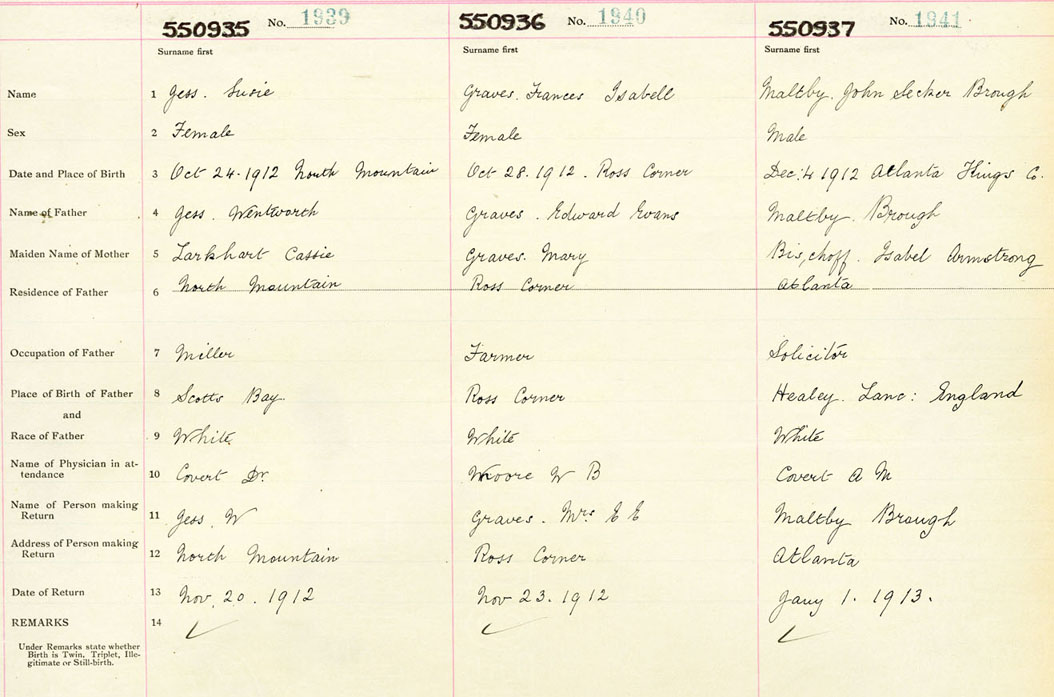 550935 No. 1939 550936 No. 1940 550937 No. 1941
Surname first Surname first Surname first
Name 1 Gess. Susie Graves. Frances Isabell Maltby. John Secker Brough
Sex 2 Female Female Male
Date and Place of Birth 3 Oct 24.1912 North Mountain Oct 28.1912. Ross Corner Dec: 4 1912 Atlanta Kings Co.
Name of Father 4 Gess. Wentworth Graves. Edward Evans Maltby. Brough
Maiden Name of Mother 5 Larkhart Cassie Graves. Mary Bischoff. Isabel Armstrong
Residence of Father 6 North Mountain Ross Corner Atlanta
Occupation of Father 7 Miller Farmer Solicitor
Place of Birth of Father 8 Scotts Bay. Ross Corner Healey. Lanc: England
and
Race of Father 9 White White White
Name of Physician in at-
tendance 10 Covert Dr. Moore W B Covert A M
Name of Person making
Return 11 Gess. W Graves. Mrs E E Maltby Brough
Address of Person making
Return 12 North Mountain Ross Corner Atlanta
Date of Return 13 Nov. 20. 1912 Nov 23. 1912 Jany 1. 1913.
REMARKS 14
Under Remarks state whether
Birth is Twin, Triplet, Ille-
gitimate or Still-birth.